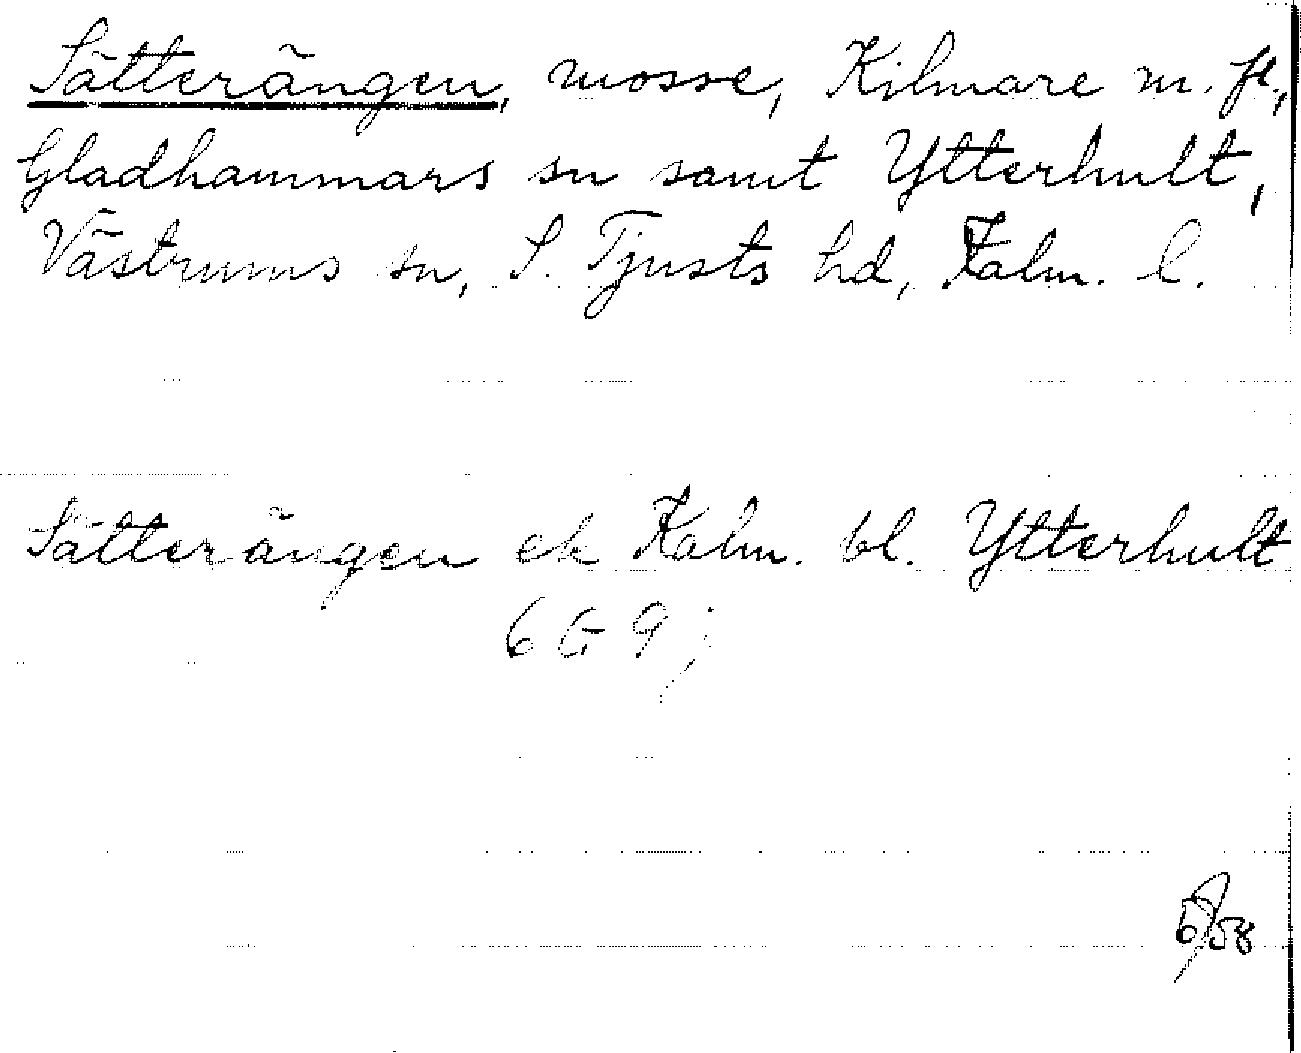 Sätterängen, mosse, Kilmare m. fl.,
Gladhammars sn samt Ytterhult,
Västrums sn, S. Tjusts hd, Kalm. l.
Sätterängen ek Kalm. bl. Ytterhult
6 G 9 j